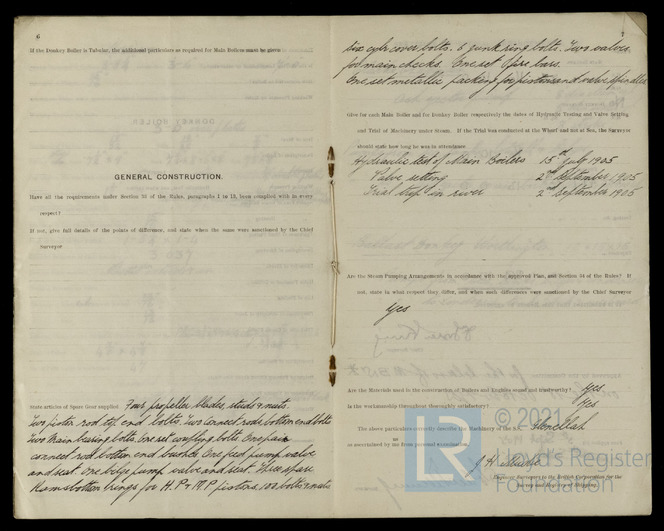 6
If the Donkey Boiler is Tubular, the additional particulars as required for Main Boilers must be given
GENERAL CONSTRUCTION.
Have all the requirements under Section 36 of the Rules, paragraphs 1 to 19, been complied with in every
respect?
If not, give full details of the points of difference, and state when the same were sanctioned by the Chief
Surveyor
State articles of Spare Gear supplied. Four propeller blades, studs & nuts.
Two piston rod top end bolts. Two connect rods bottom end bolts
Two main bearing bolts. One set coupling bolts. One pair
connect rod bottom end bushes. One feed pump valve
and seat. One bilge pump valve and seat. Three spare
Ramsbottom rings for H.P & M.P pistons. 100 bolts & nuts
7
Six cylr cover bolts. 6 junk ring bolts. Two valves
for main checks. One set of fire bars.
One set metallic packing for pistons and valve spindles
Give for each Main Boiler and for Donkey Boiler respectively the dates of Hydraulic Testing and Valve Setting,
and Trial of Machinery under Steam. If the Trial was conducted at the Wharf and not at Sea, the Surveyor
should state how long he was in attendance
Hydraulic test of Main Boilers 15th July 1905
Valve setting 2nd September 1905
Trial trip in river 2nd September 1905
Are the Steam Pumping Arrangements in accordance with the approved Plan, and Section 34 of the Rules? If
not, state in what respect they differ, and when such differences were sanctioned by the Chief Surveyor
Yes
Are the Materials used in the construction of Boilers and Engines sound and trustworthy? Yes
Is the workmanship throughout thoroughly satisfactory? Yes
The above particulars correctly describe the Machinery of the S.S.
as ascertained by me from personal examination
Engineer Surveyor to the British Corporation for the
Survey and Registry of Shipping.
© 2021
LR
Lloyd's Register
Foundation